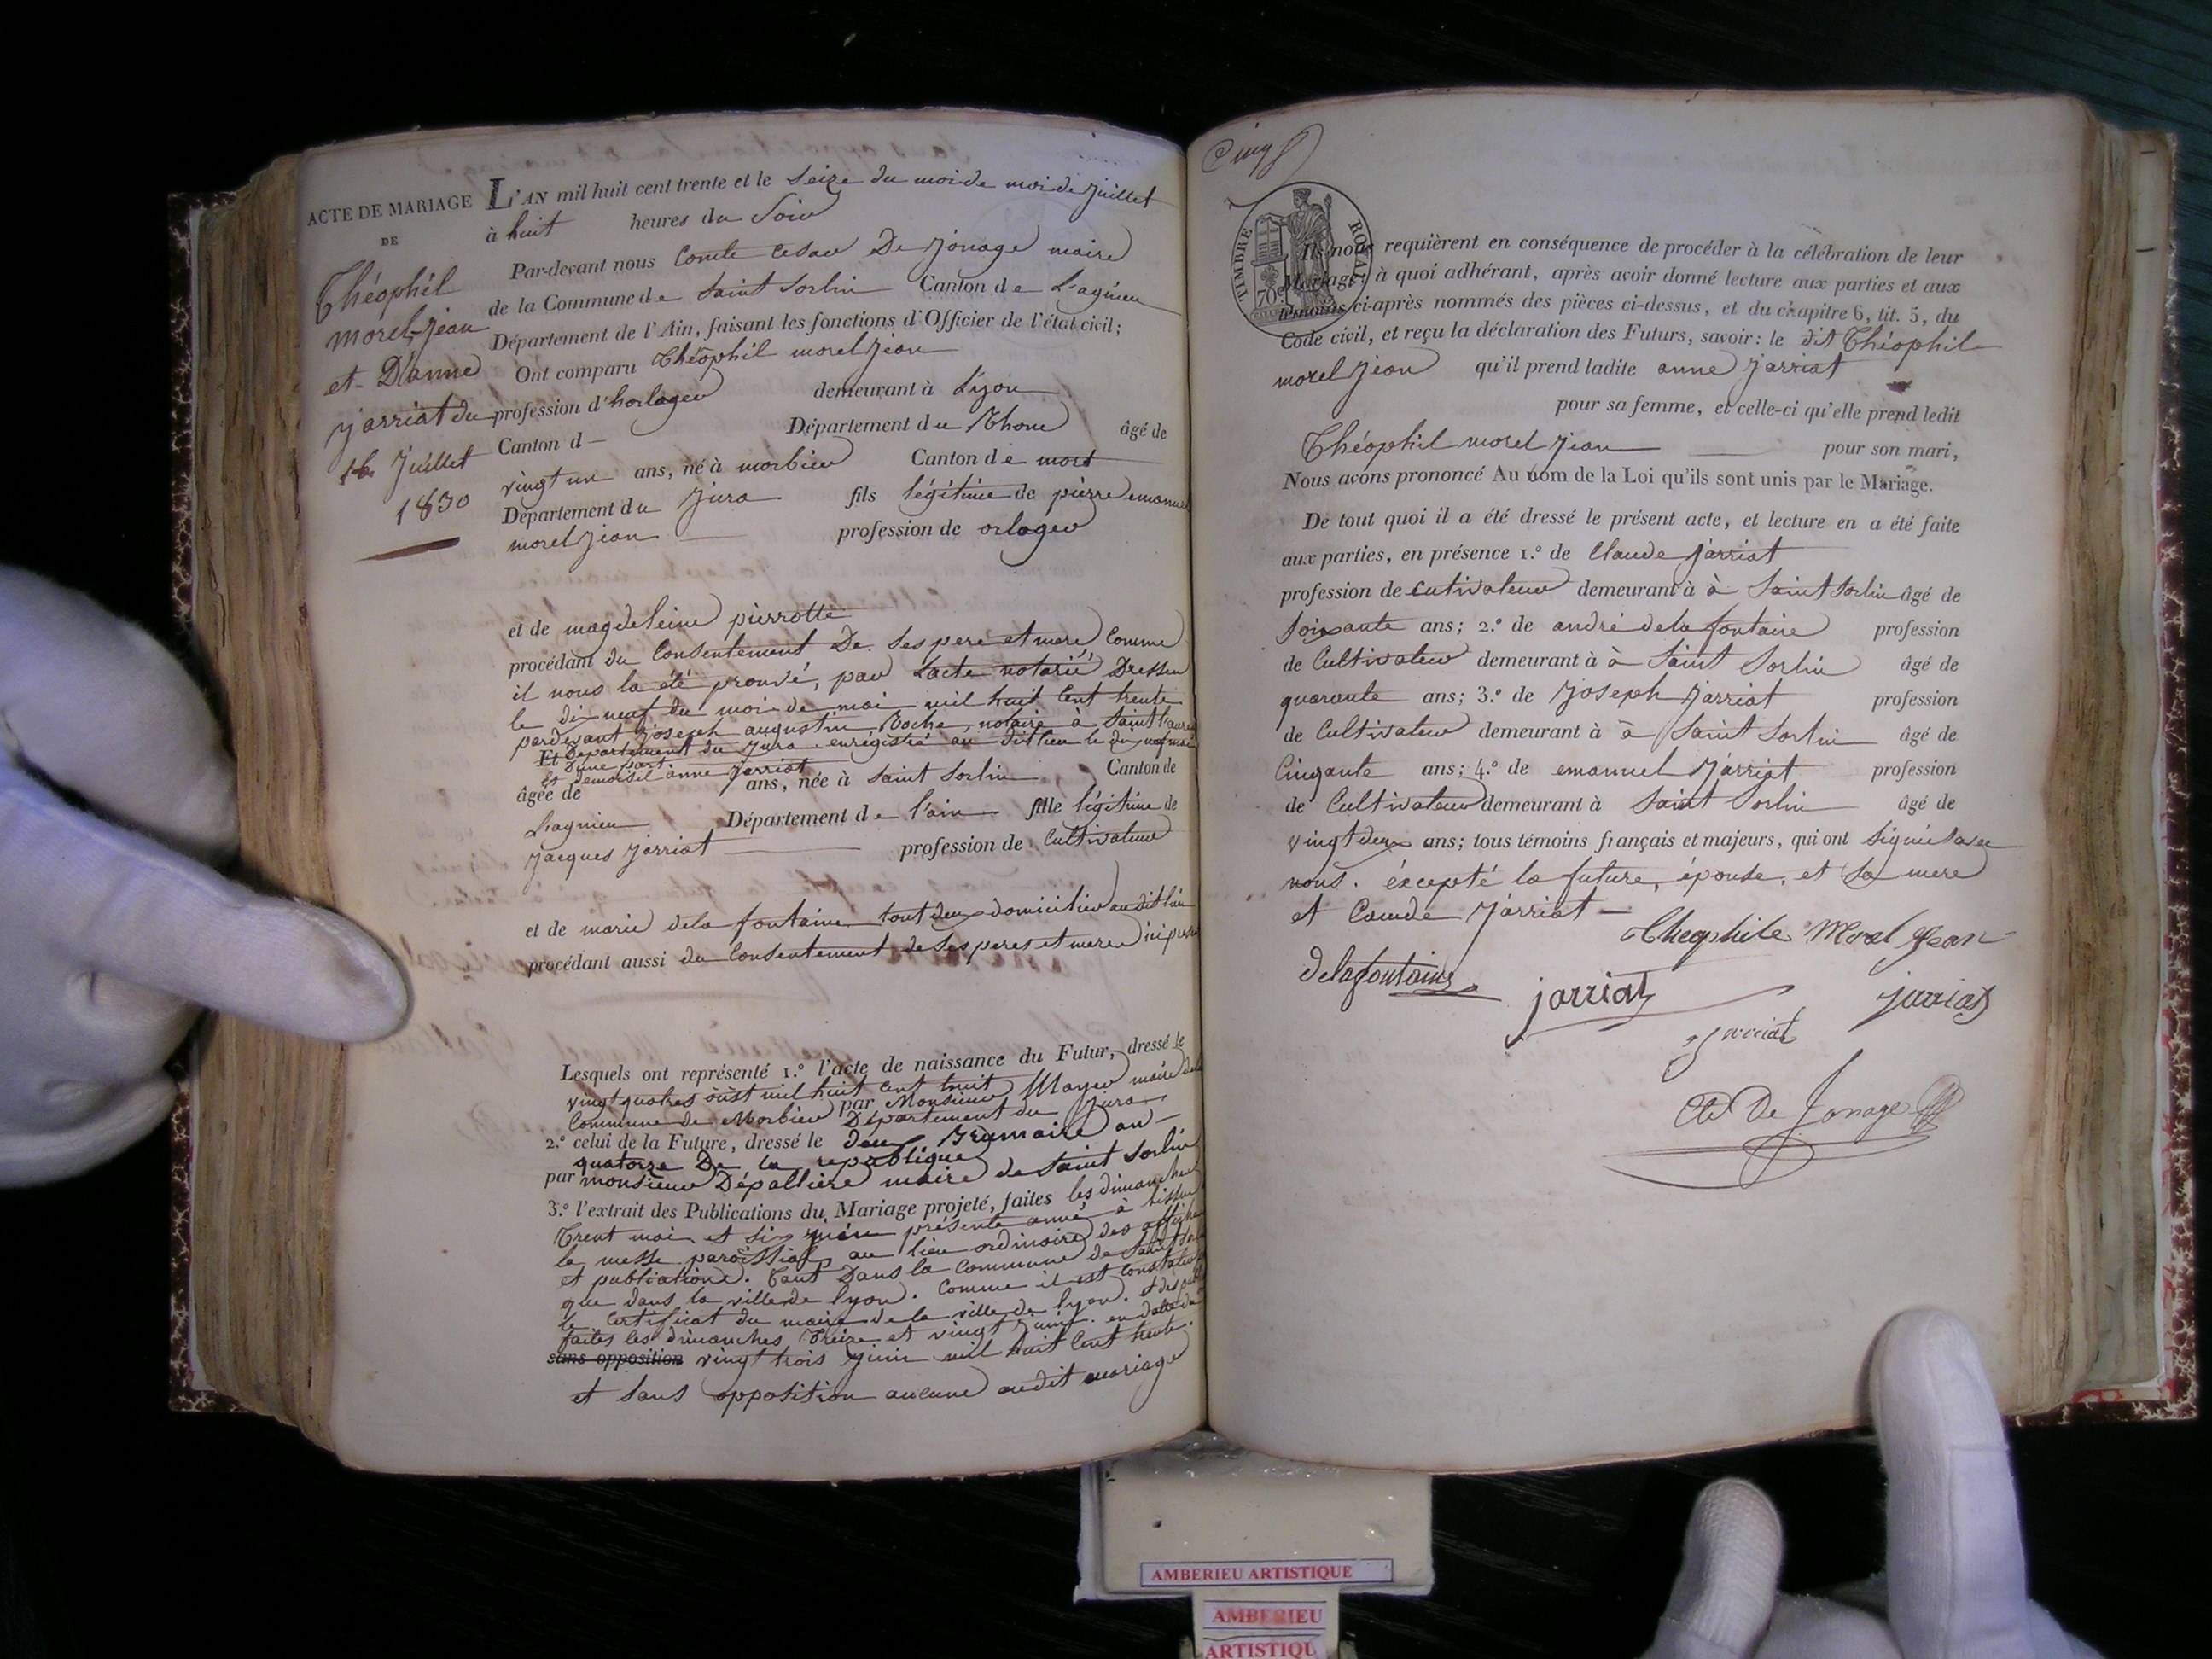 ACTE DE MARIAGE
DE
Théophil
morel-jean
et D'anne
jarriat du
16 Juillet
1830
L'AN mil huit cent trente et le seize du moi de moi de juillet
à huit heures du Soir
Par-devant nous Comte Cesar De jonage maire
de la Commune de Saint Sorlin Canton de Lagnieu
Département de l'Ain, faisant les fonctions d'Officier de l'état civil;
Ont comparu Théophil morel jean
profession d'horloger demeurant à Lyon
Canton d Département du Rhone âgé de
vingt un ans, né à morbier Canton de mort
Département du Jura fils légitime de pierre emanuel
morel jean profession de orloger
et de magdeleine pierrotte
procédant du Consentement De ses pere et mere Comme
il nous la été prouvé, par Lacte notarié Dressee
le dix neuf du moi de mai mil huit Cent trente
pardevant joseph augustin Roche, notaire à Saint Laurent
Et Département du Jura enrégistré au dit lieu le dix neuf mai
D'une part
et demoisel anne jarriat
âgée de ans, née à Saint Sorlin Canton de
Lagnieu Département de l'ain fille légitime de
jacques jarriat profession de Cultivateur
et de marie dela fontaine tout deux domicilier au dit lieu
procédant aussi du Consentement de ses peres et mere ici présent
Lesquels ont représenté 1.º l'acte de naissance du Futur, dressé le
vingt quatres oûst mil huit Cent huit par Monsieur Mayer maire dela
Commune de Morbier Département du Jura
2.º celui de la Future, dressé le deux Brumaire an
quatorze De la republique
par monsieur Dépallière maire de Saint Sorlin
3.º l'extrait des Publications du Mariage projeté, faites les dimanches
Trent mai et six juin présente année à lissue
la messe paroissial au lieu ordinaire des affiches
et publiations. Tant Dans la Commune de Saint Sorlin
que dans la ville de lyon. Comme il est Constaté
le Certificat du maire de la ville de lyon. et des
faites les dimanches Treize et vingt juin. en datte du
sans opposition vingt trois juin mill huit Cent trente.
et sans opposition aucune audit mariage
Cinq
TIMBRE ROYAL
70
Ils nous requièrent en conséquence de procéder à la célébration de leur
Mariage; à quoi adhérant, après avoir donné lecture aux parties et aux
témoins ci-après nommés des pièces ci-dessus, et du chapitre 6, tit. 5, du
Code civil, et reçu la déclaration des Futurs, savoir: le dit Théophil
morel jean qu'il prend ladite anne jarriat
pour sa femme, et celle-ci qu'elle prend ledit
Théophil morel jean pour son mari,
Nous avons prononcé Au nom de la Loi qu'ils sont unis par le Mariage.
De tout quoi il a été dressé le présent acte, et lecture en a été faite
aux parties, en présence 1.º de Claude jarriat
profession de cutivateur demeurant à à Saint Sorlin âgé de
soixante ans; 2.º de andré dela fontaine profession
de Cultivateur demeurant à à Saint Sorlin âgé de
quarante ans; 3.º de joseph jarriat profession
de Cultivateur demeurant à à Saint Sorlin âgé de
Cinqante ans; 4.º de emanuel jarriat profession
de Cultivateur demeurant à Saint Sorlin âgé de
vingt deux ans; tous témoins français et majeurs, qui ont signées avec
nous. éxcepté la future, épouse, et sa mere
et Caude jarriat
Theophile Morel Jean
delafontaine
jarriat
jarriat
jarriat
Cte De Jonage
AMBERIEU ARTISTIQUE
AMBERIEU
ARTISTIQU